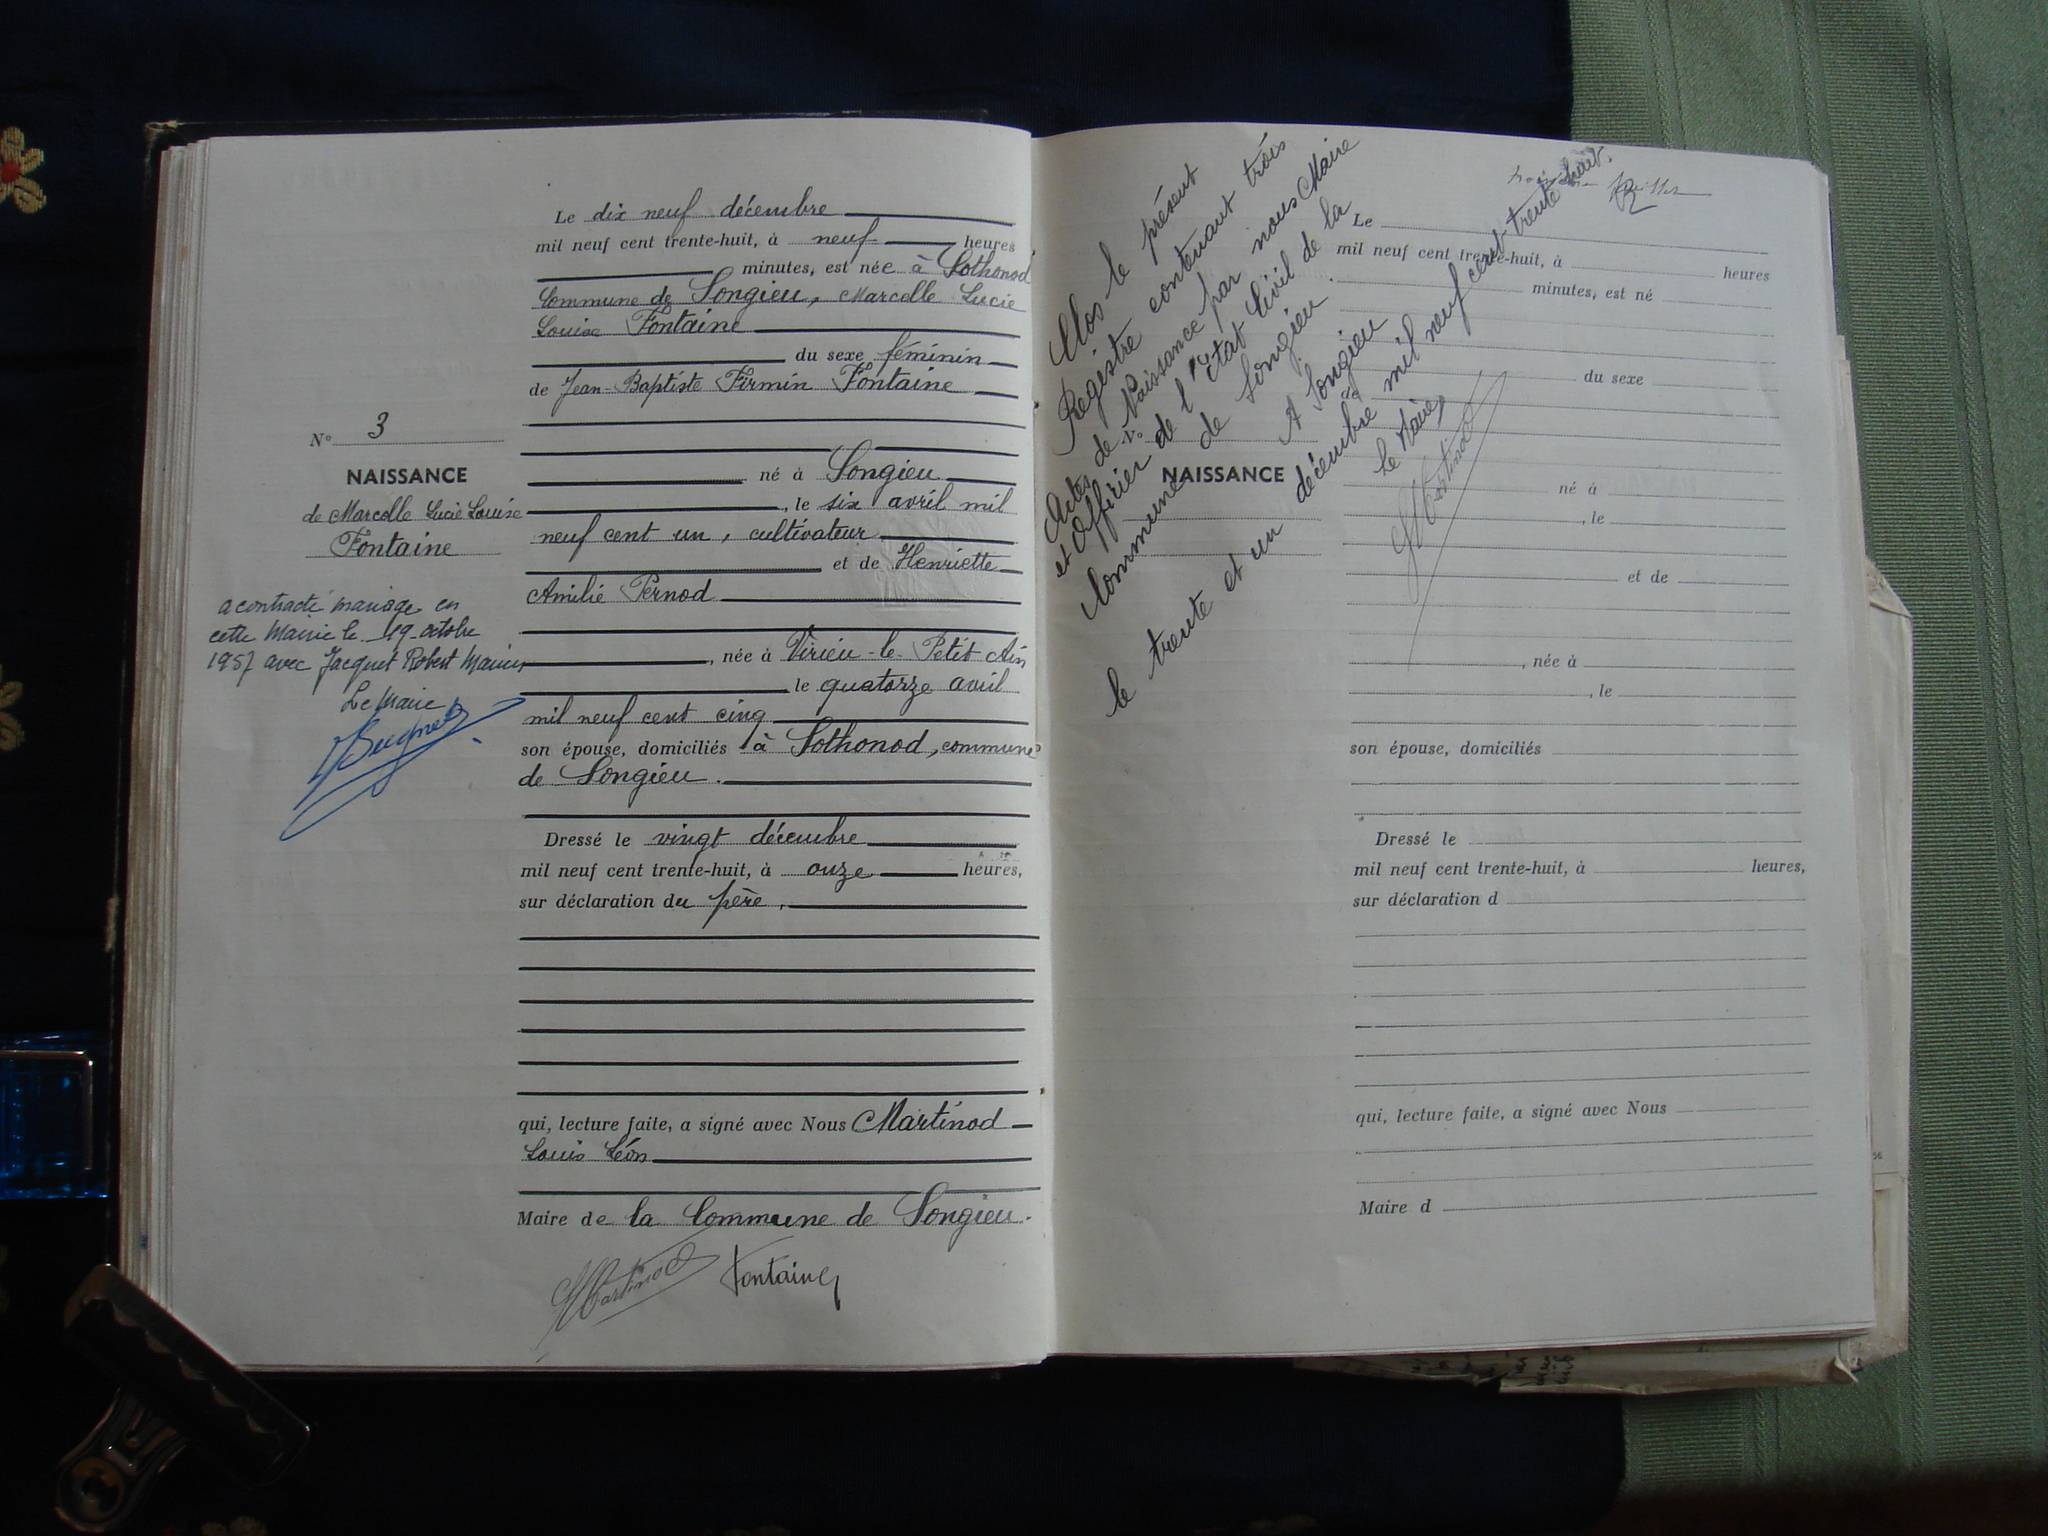 Le dix neuf décembre
mil neuf cent trente-huit, à neuf heures
minutes, est née à Sothonod
Commune de Songieu, Marcelle Lucie
Louise Fontaine
du sexe féminin
de Jean-Baptiste Firmin Fontaine
né à Songieu
, le six avril mil
neuf cent un, cultivateur
et de Henriette
Amélie Pernod
, née à Virieu-le-Petit Ain
le quatorze avril
mil neuf cent cinq
son épouse, domiciliés à Sothonod, commune
de Songieu.
Dressé le vingt décembre
mil neuf cent trente-huit, à onze heures,
sur déclaration du père,
qui, lecture faite, a signé avec Nous Martinod
Louis Léon
Maire de la Commune de Songieu.
Martinod Fontaine
N° 3
NAISSANCE
de Marcelle Lucie Louise
Fontaine
a contracté mariage en
cette Mairie le 19 octobre
1957 avec Jacquet Robert
Le Maire
Clos le présent
Registre contenant trois
Actes de Naissance par nous Maire
et Officier de l'Etat Civil de la
Commune de Songieu.
A Songieu
le trente et un décembre mil neuf cent trente huit.
Le Maire,
Martinod
N°
NAISSANCE
Le
mil neuf cent trente-huit, à heures
minutes, est né
du sexe
de
né à
, le
et de
, née à
, le
son épouse, domiciliés
Dressé le
mil neuf cent trente-huit, à heures,
sur déclaration d
qui, lecture faite, a signé avec Nous
Maire d
56